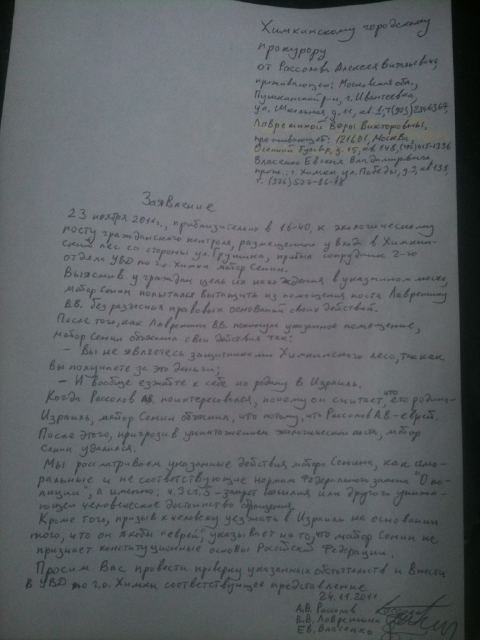 Химкинскому городскому
прокурору
от Рассолова Алексея
проживающего: Московская обл.,
Пушкинский р-н, г. Ивантеевка,
Лаврентиной Веры Викторовны,
121601, Москва,
Осенний бульвар, д. 15,
Власенко Евгения Владимировича,
прож.: г. Химки, ул. Победы,
Заявление
23 ноября 2011 г., приблизительно в 16-40, к экологическому
посту гражданского контроля, размещенному у входа в Химкин-
ский лес со стороны ул. прибыл сотрудник 2-го
отдела УВД по г.о. Химки майор Сенин.
Выяснив у граждан цель их нахождения в указанном месте,
майор Сенин попытался вытащить из помещения поста Лаврентину
В.В. без разъяснения правовых оснований своих действий.
После того, как Лаврентина В.В. покинула указанное помещение,
майор Сенин объяснил свои действия так:
– Вы не являетесь защитниками Химкинского леса, так как
вы получаете за это деньги;
– И вообще езжайте к себе на родину в Израиль.
Когда Рассолов АВ. поинтересовался, почему он считает, что его родина-
Израиль, майор Сенин объяснил, что потому, что Рассолов АВ – еврей.
После этого, пригрозив уничтожением экологического поста, майор
Сенин удалился.
Мы рассматриваем указанные действия майора Сенина, как амо-
ральные и не соответствующие нормам Федерального закона "О по-
лиции", а именно: ч.3 ст.5 – запрет насилия или другого унижа-
ющего человеческое достоинство обращения.
Кроме того, призыв к человеку уезжать в Израиль на основании
того, что он якобы "еврей", указывает на то, что майор Сенин не
признает конституционные основы Российской Федерации.
Просим Вас провести проверку указанных обстоятельств и внести
в УВД по г.о. Химки соответствующее представление.
24.11.2011
А.В. Рассолов
В.В. Лаврентина
Е.В. Власенко